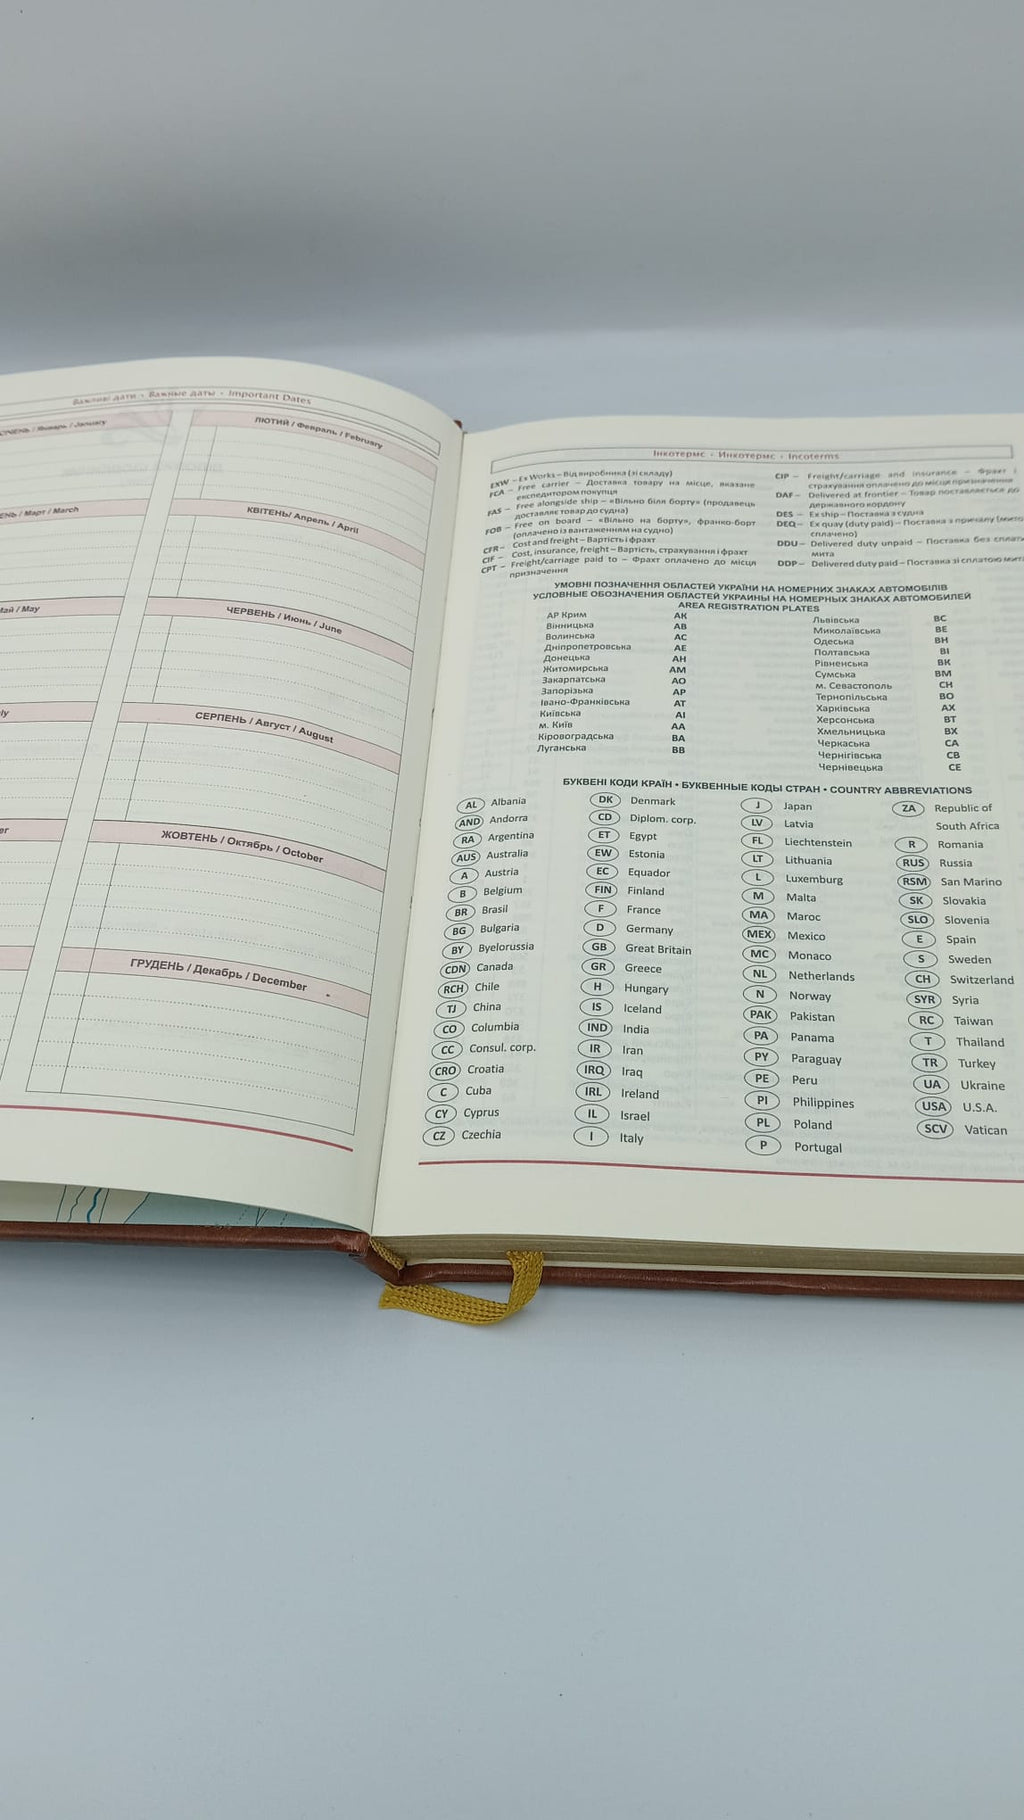 Важливі дати • Важные даты • Important Dates
СІЧЕНЬ / Январь / January
ЛЮТИЙ / Февраль / February
/ Март / March
КВІТЕНЬ/ Апрель / April
/ May
ЧЕРВЕНЬ / Июнь / June
СЕРПЕНЬ / Август / August
ЖОВТЕНЬ / Октябрь / October
ГРУДЕНЬ / Декабрь / December
Інкотермс • Инкотермс • Incoterms
EXW – Ex Works – Від виробника (зі складу)
FCA – Free carrier – Доставка товару на місце, вказане
експедитором покупця
FAS – Free alongside ship – «Вільно біля борту» (продавець
доставляє товар до судна)
FOB – Free on board – «Вільно на борту», франко-борт
(оплачено із вантаженням на судно)
CFR – Cost and freight – Вартість і фрахт
CIF – Cost, insurance, freight – Вартість, страхування і фрахт
CPT – Freight/carriage paid to – Фрахт оплачено до місця
призначення
CIP – Freight/carriage and insurance – Фрахт і
страхування оплачено до місця призначення
DAF – Delivered at frontier – Товар поставляється до
державного кордону
DES – Ex ship – Поставка з судна
DEQ – Ex quay (duty paid) – Поставка з причалу (мито
сплачено)
DDU – Delivered duty unpaid – Поставка без сплати
мита
DDP – Delivered duty paid – Поставка зі сплатою мита
УМОВНІ ПОЗНАЧЕННЯ ОБЛАСТЕЙ УКРАЇНИ НА НОМЕРНИХ ЗНАКАХ АВТОМОБІЛІВ
УСЛОВНЫЕ ОБОЗНАЧЕНИЯ ОБЛАСТЕЙ УКРАИНЫ НА НОМЕРНЫХ ЗНАКАХ АВТОМОБИЛЕЙ
AREA REGISTRATION PLATES
АР Крим АК
Вінницька АВ
Волинська АС
Дніпропетровська АЕ
Донецька АН
Житомирська АМ
Закарпатська АО
Запорізька АР
Івано-Франківська АТ
Київська АІ
м. Київ АА
Кіровоградська ВА
Луганська ВВ
Львівська ВС
Миколаївська ВЕ
Одеська ВН
Полтавська ВІ
Рівненська ВК
Сумська ВМ
м. Севастополь СН
Тернопільська ВО
Харківська АХ
Херсонська ВТ
Хмельницька ВХ
Черкаська СА
Чернігівська СВ
Чернівецька СЕ
БУКВЕНІ КОДИ КРАЇН • БУКВЕННЫЕ КОДЫ СТРАН • COUNTRY ABBREVIATIONS
AL Albania
AND Andorra
RA Argentina
AUS Australia
A Austria
B Belgium
BR Brasil
BG Bulgaria
BY Byelorussia
CDN Canada
RCH Chile
TJ China
CO Columbia
CC Consul. corp.
CRO Croatia
C Cuba
CY Cyprus
CZ Czechia
DK Denmark
CD Diplom. corp.
ET Egypt
EW Estonia
EC Equador
FIN Finland
F France
D Germany
GB Great Britain
GR Greece
H Hungary
IS Iceland
IND India
IR Iran
IRQ Iraq
IRL Ireland
IL Israel
I Italy
J Japan
LV Latvia
FL Liechtenstein
LT Lithuania
L Luxemburg
M Malta
MA Maroc
MEX Mexico
MC Monaco
NL Netherlands
N Norway
PAK Pakistan
PA Panama
PY Paraguay
PE Peru
PI Philippines
PL Poland
P Portugal
ZA Republic of
South Africa
R Romania
RUS Russia
RSM San Marino
SK Slovakia
SLO Slovenia
E Spain
S Sweden
CH Switzerland
SYR Syria
RC Taiwan
T Thailand
TR Turkey
UA Ukraine
USA U.S.A.
SCV Vatican